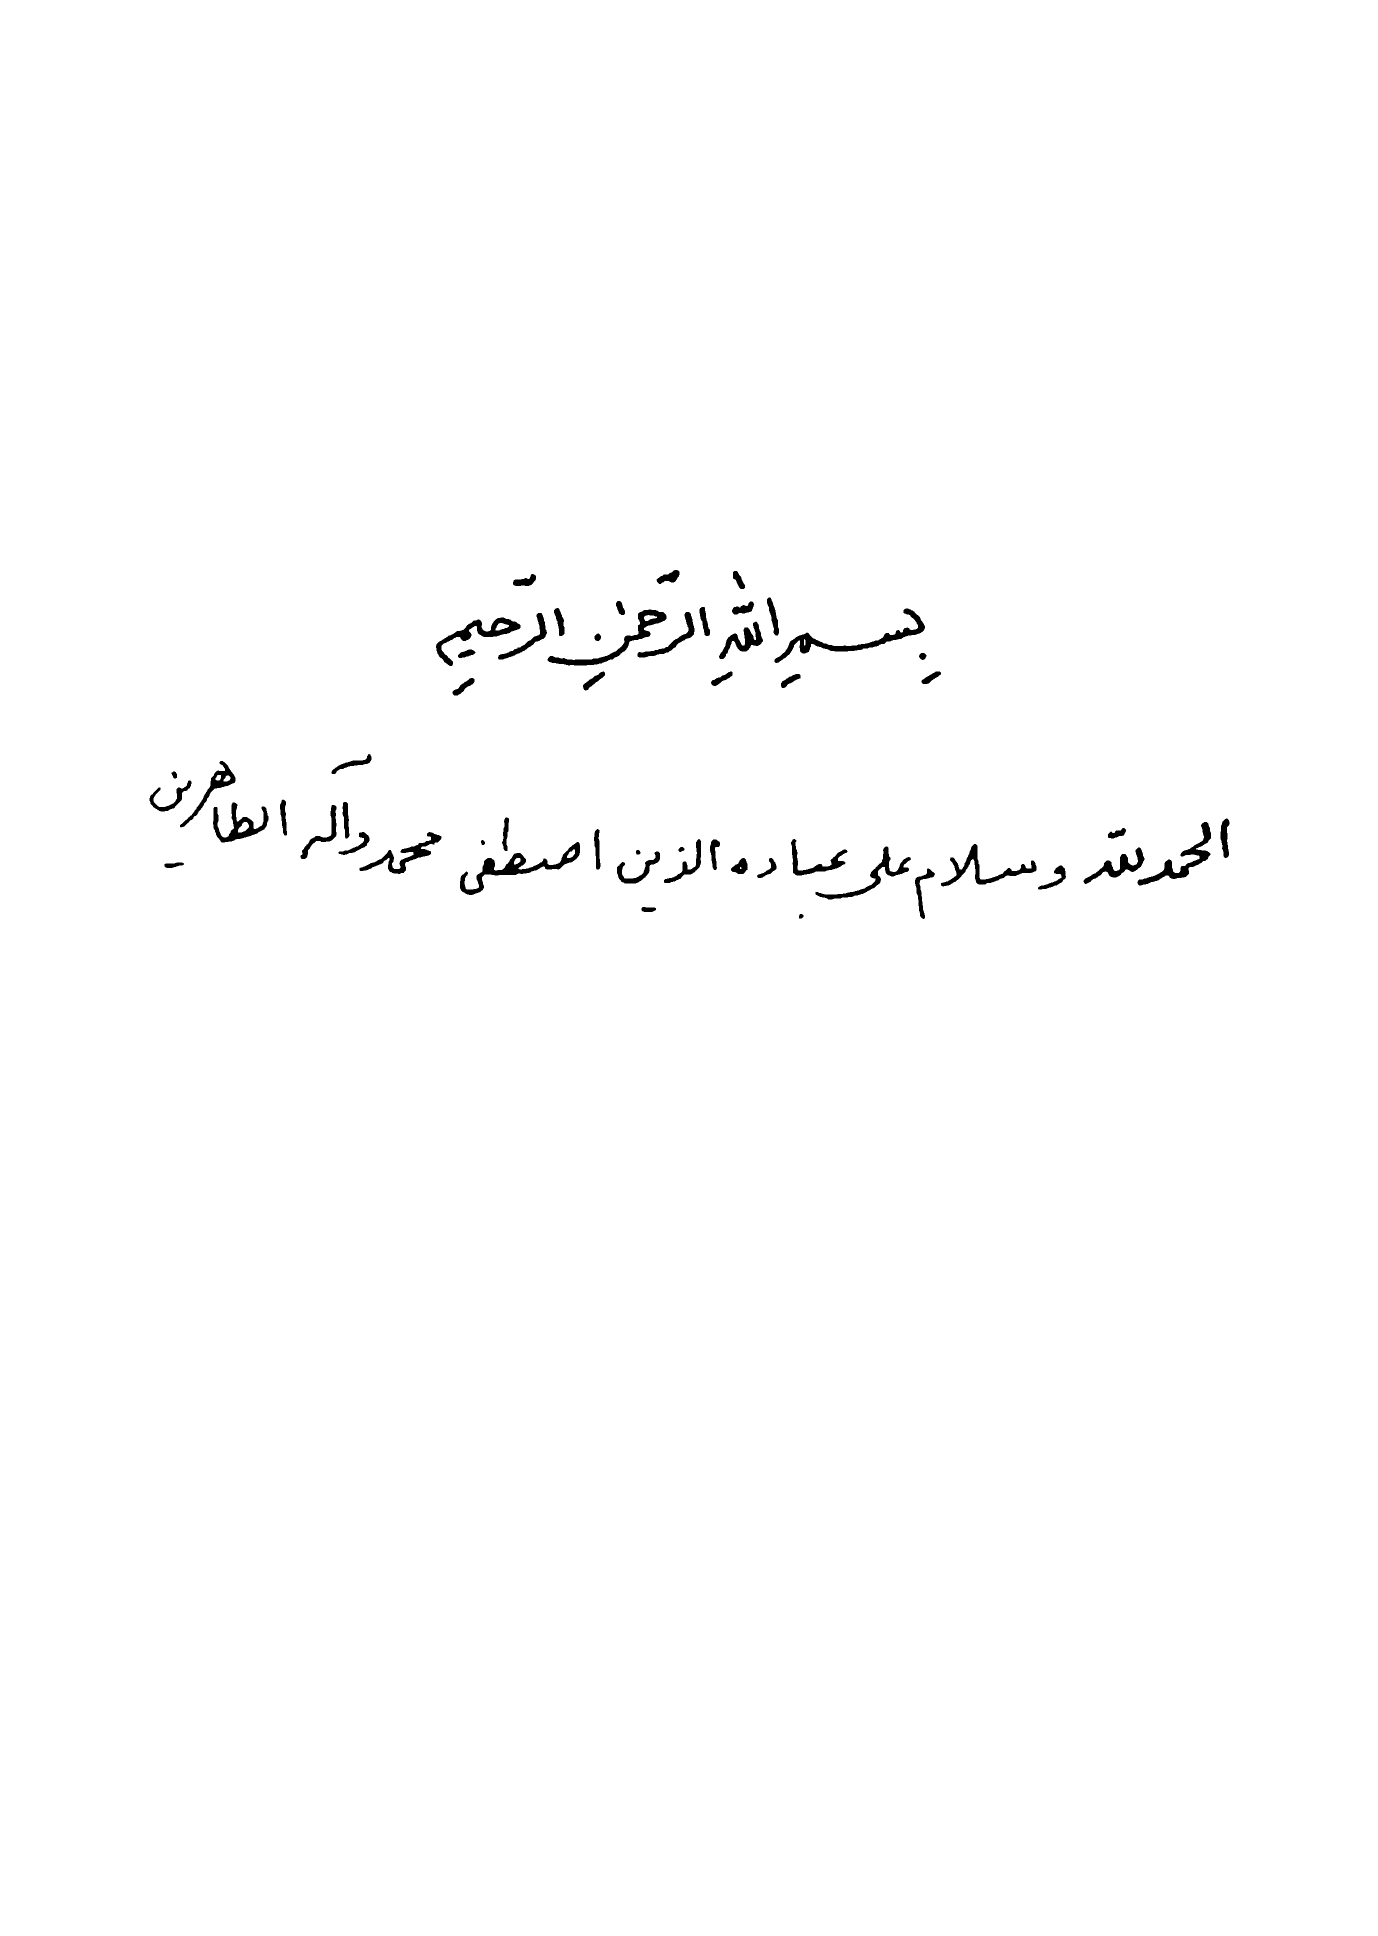 بِسمِ اللّٰهِ الرّحمٰنِ الرّحيمِ
الحمد للّه و سلام على عباده الذين اصطفى محمد وآله الطاهرين